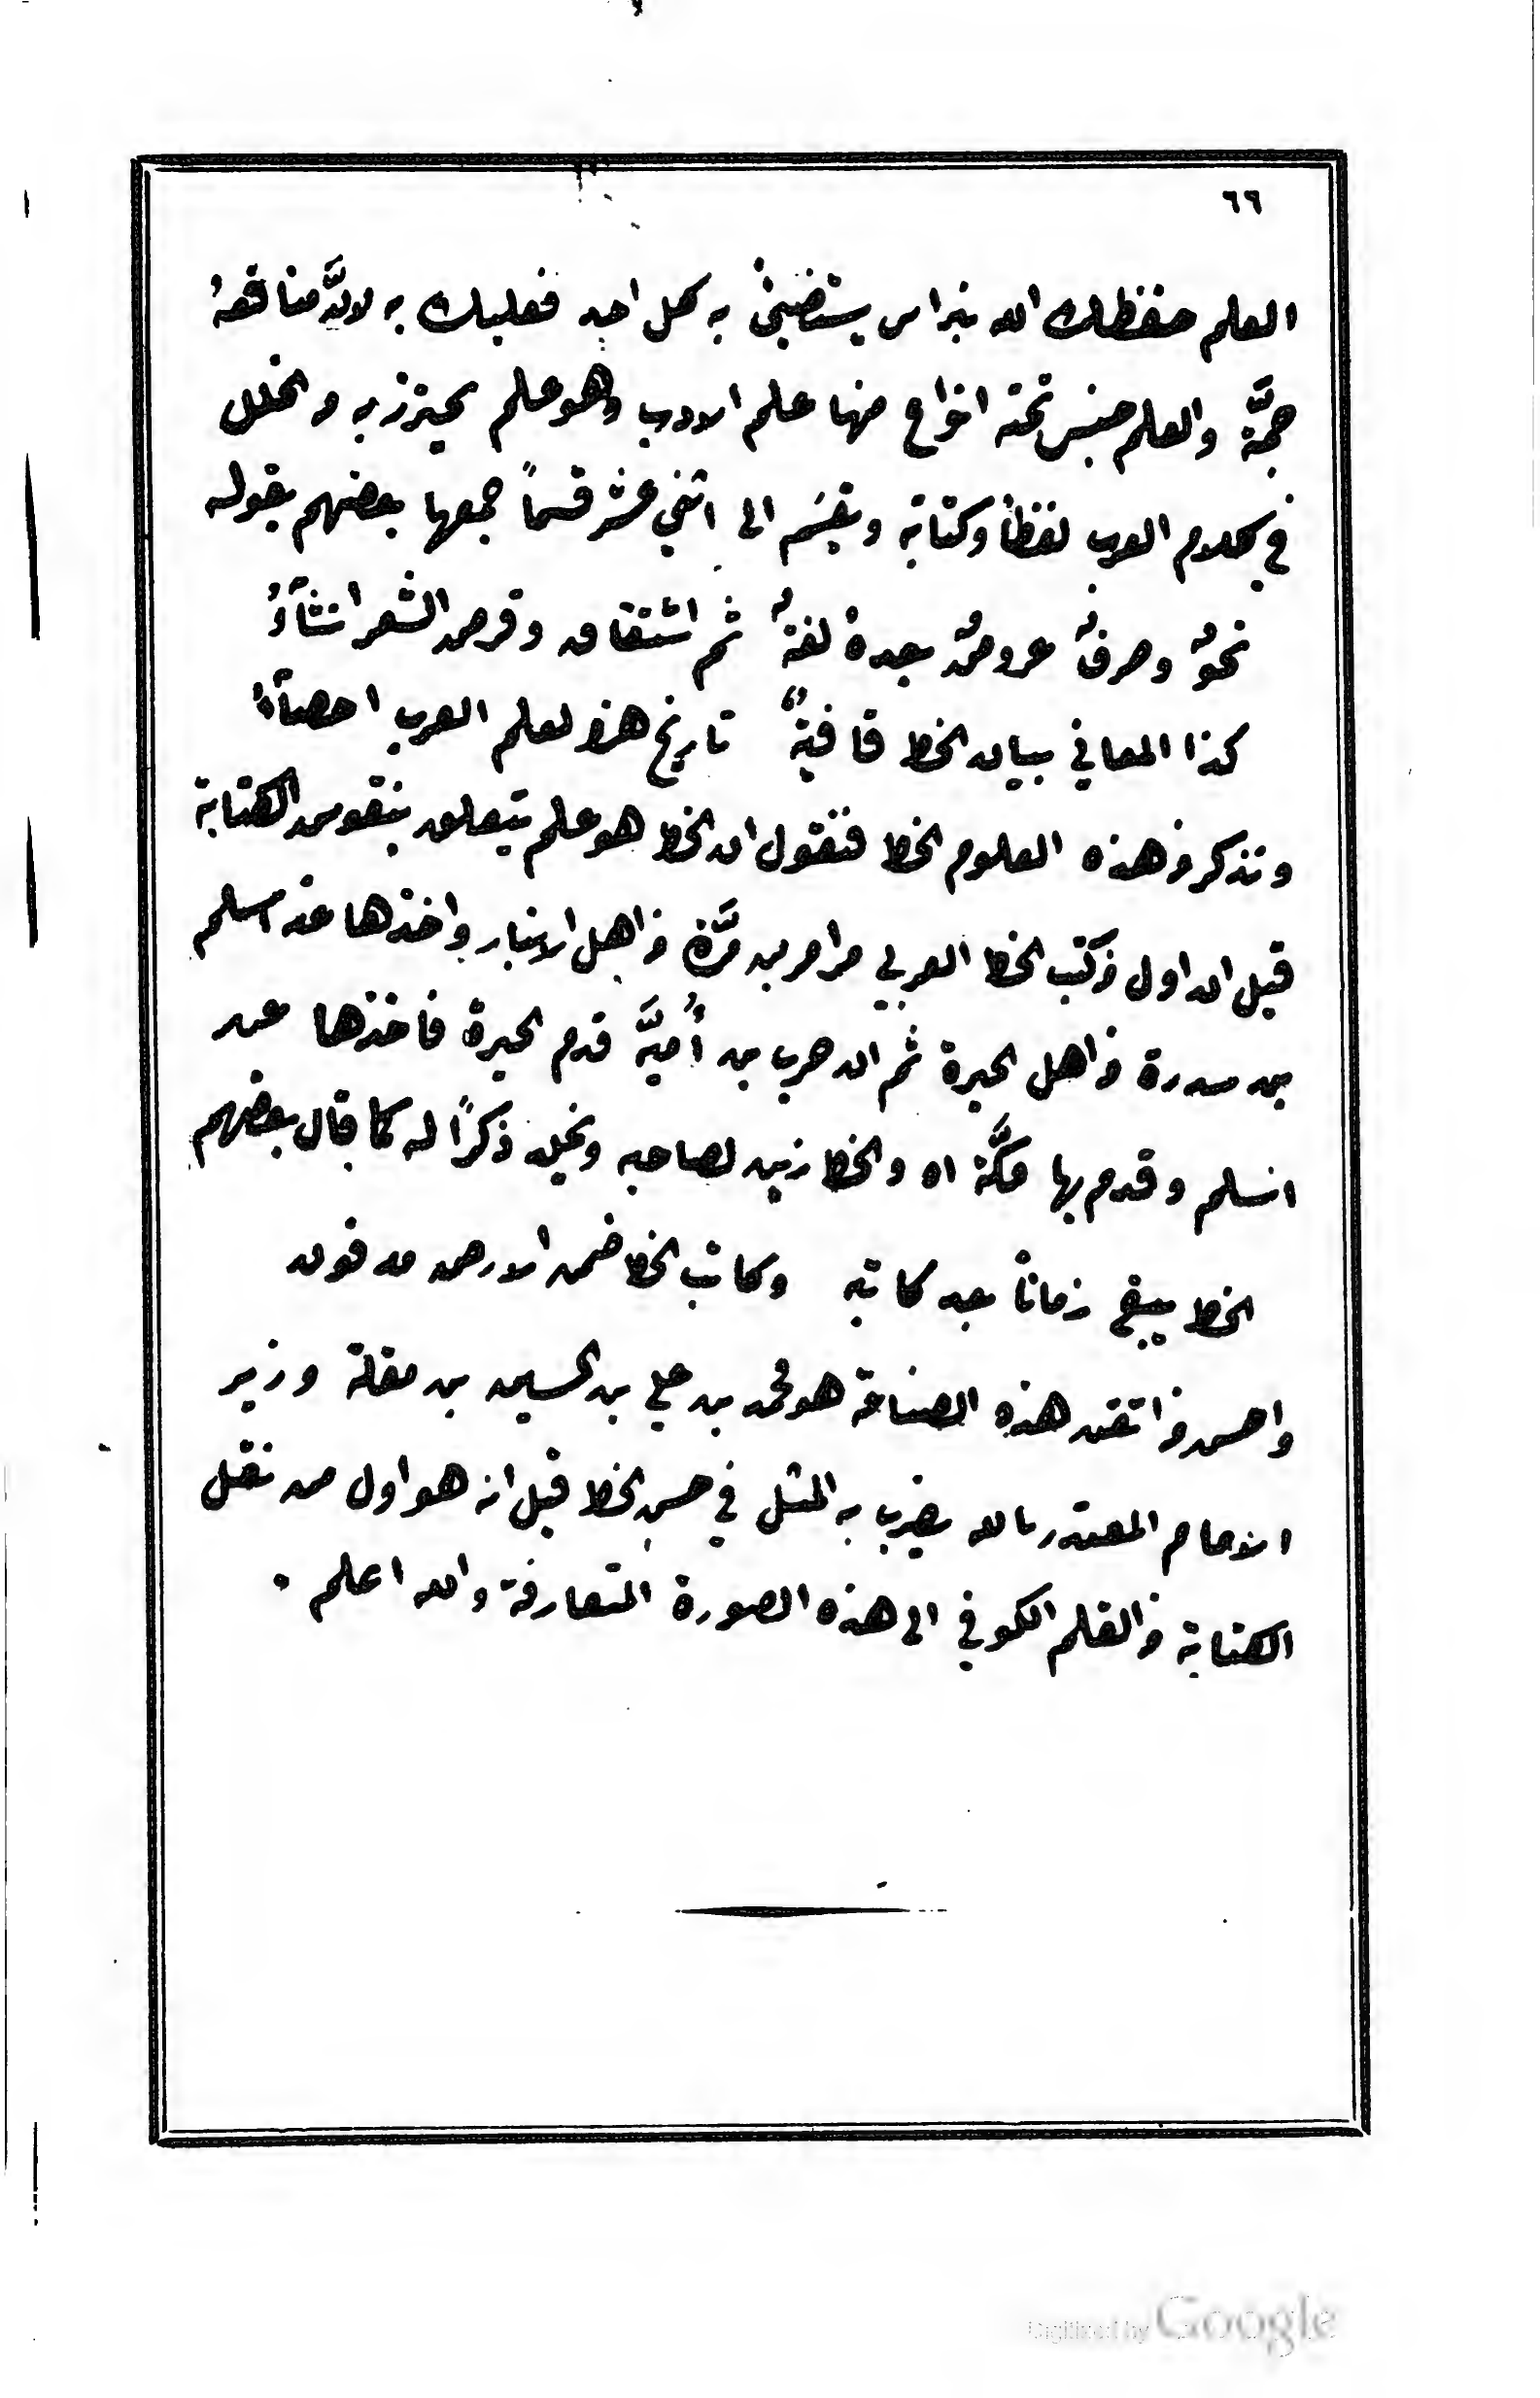 ٦٦
العلم حفظك الله نبراس يستضيئ به كل احد فعليك به لانَّ منافعهُ
جمَّة والعلم جنس تحته انواع منها علم الادب وهو علم يحترز به من الخلل
في كلام العرب لفظاً وكتابة وينقسم الى اثني عشر قسماً جمعها بعضهم بقوله
نحوٌ وصرفٌ عروضٌ بعدهُ لغةٌ ثم اشتقاق وقرض الشعر انشآءُ
كذا المعاني بيان الخط قافيةٌ تاريخ هذا لعلم العرب احصآءُ
ونذكر من هذه العلوم الخط فنقول ان الخط هو علم يتعلق بنقوش الكتابة
قيل ان اول من كتب الخط العربي مرامر بن مرَّة من اهل الانبار واخذها عنه اسلم
بن سدرة من اهل الحيرة ثم ان حرب بن أُميَّة قدم الحيرة فاخذها عن
اسلم وقدم بها مكَّة اه والخط زين لصاحبه ويخلد ذكرًا له كما قال بعضهم
الخط يبقى زماناً بعد كاتبه وكاتب الخط ضمن الارض مدفون
واحسن من اتقن هذه الصناعة هو محمد بن علي بن الحسين بن مقلة وزير
الامام المقتدر بالله يضرب به المثل في حسن الخط قيل انه هو اول من نقل
الكتابة من القلم الكوفي الى هذه الصورة المتعارفة والله اعلم .
Digitized by Google